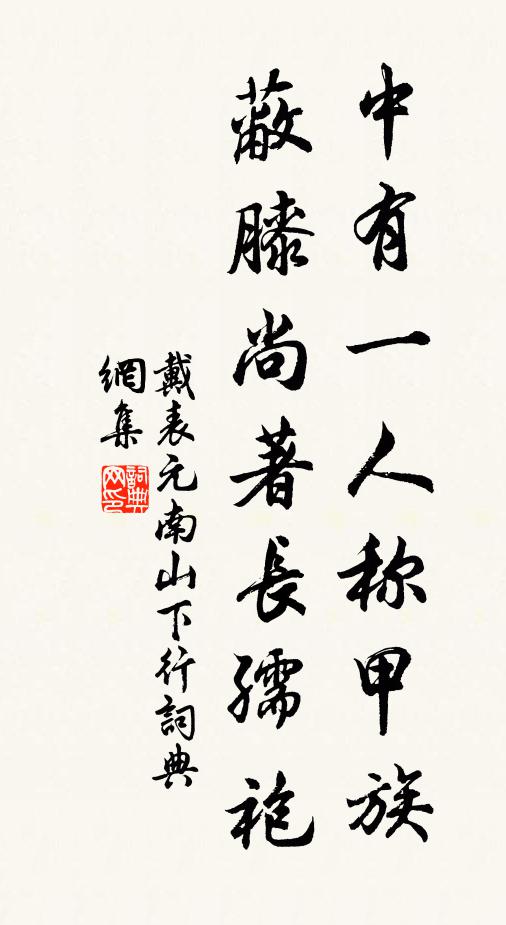 中有一人称甲族
蔽膝尚著長孺袍
戴表元南山下行詞典
網集
詞典网印